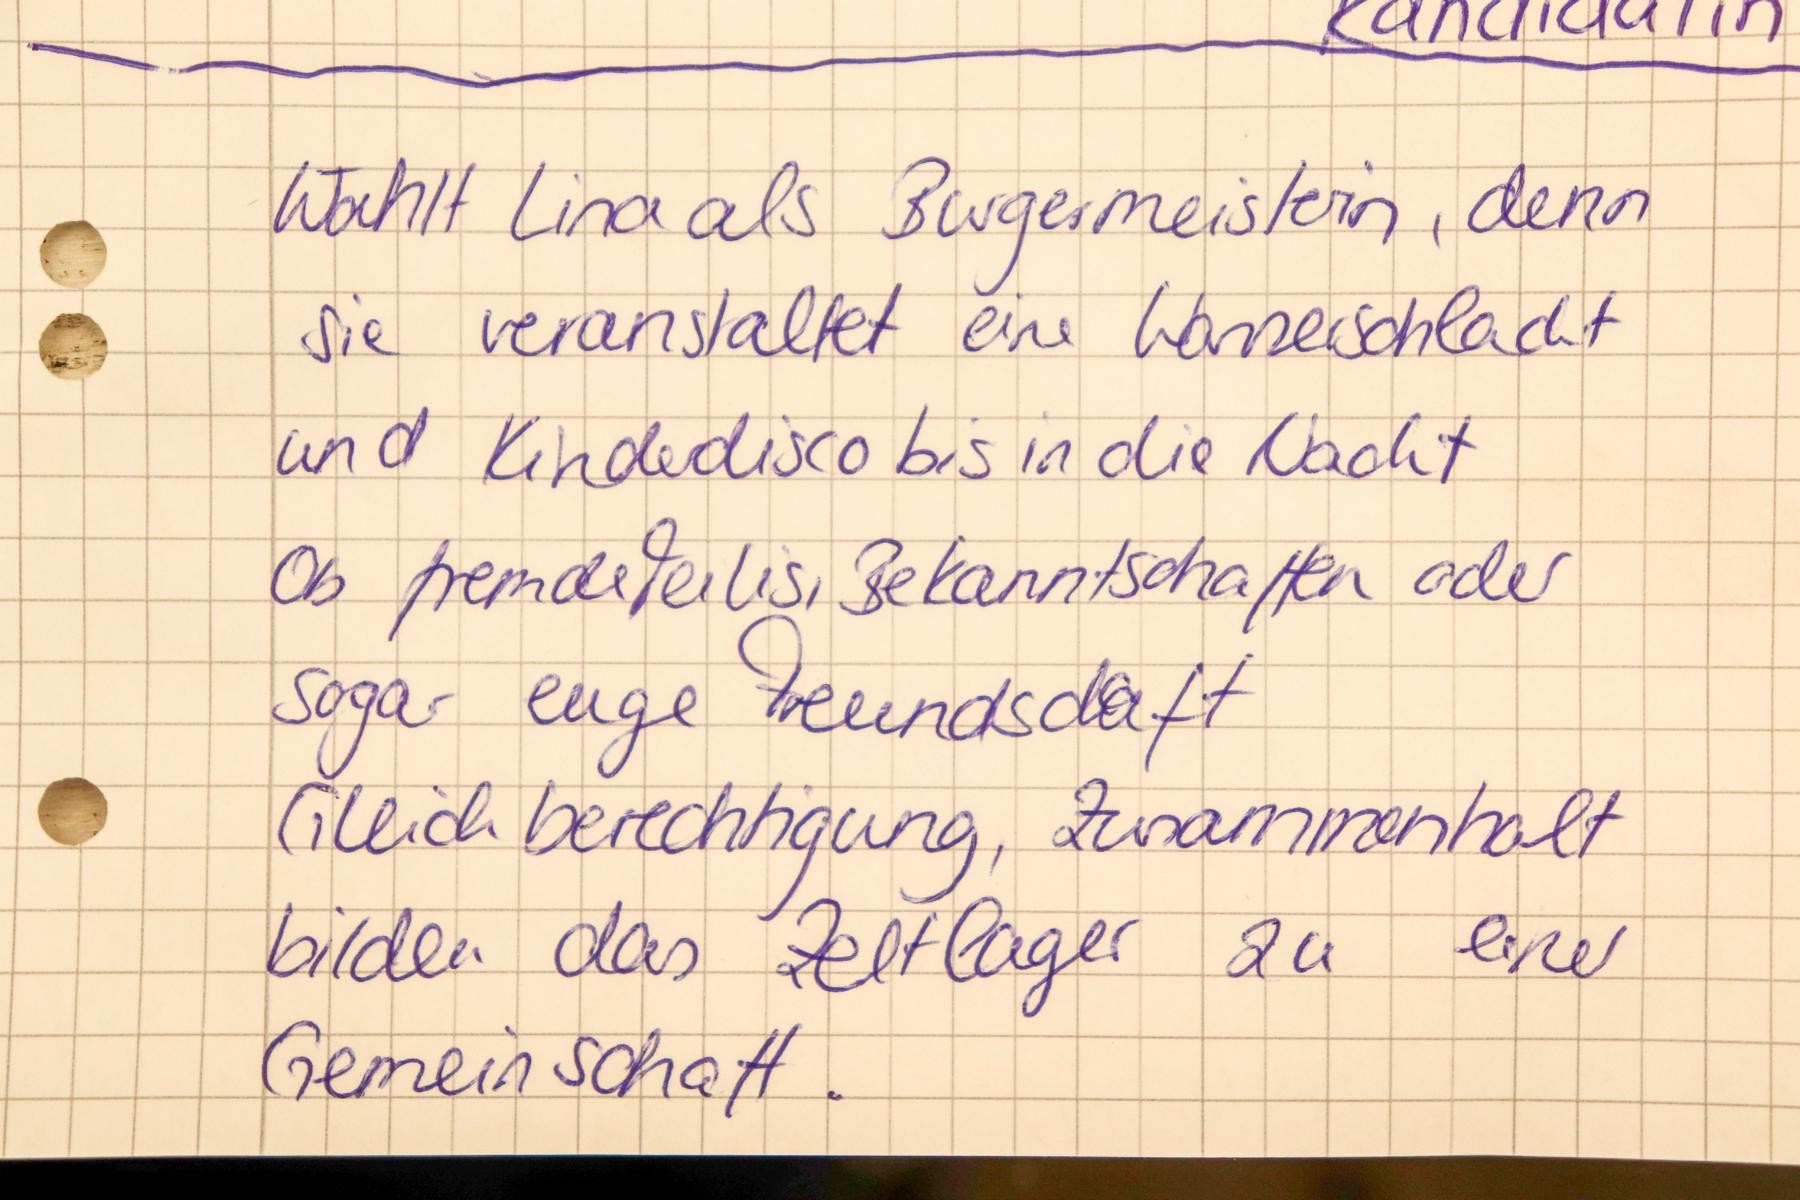 Kandidatin
Wählt Lina als Bürgermeisterin, denn
sie veranstaltet eine Wasserschlacht
und Kinderdisco bis in die Nacht
Ob fremde Teilis, Bekanntschaften oder
sogar enge Freundschaft
Gleichberechtigung, Zusammenhalt
bilden das Zeltlager zu einer
Gemeinschaft.